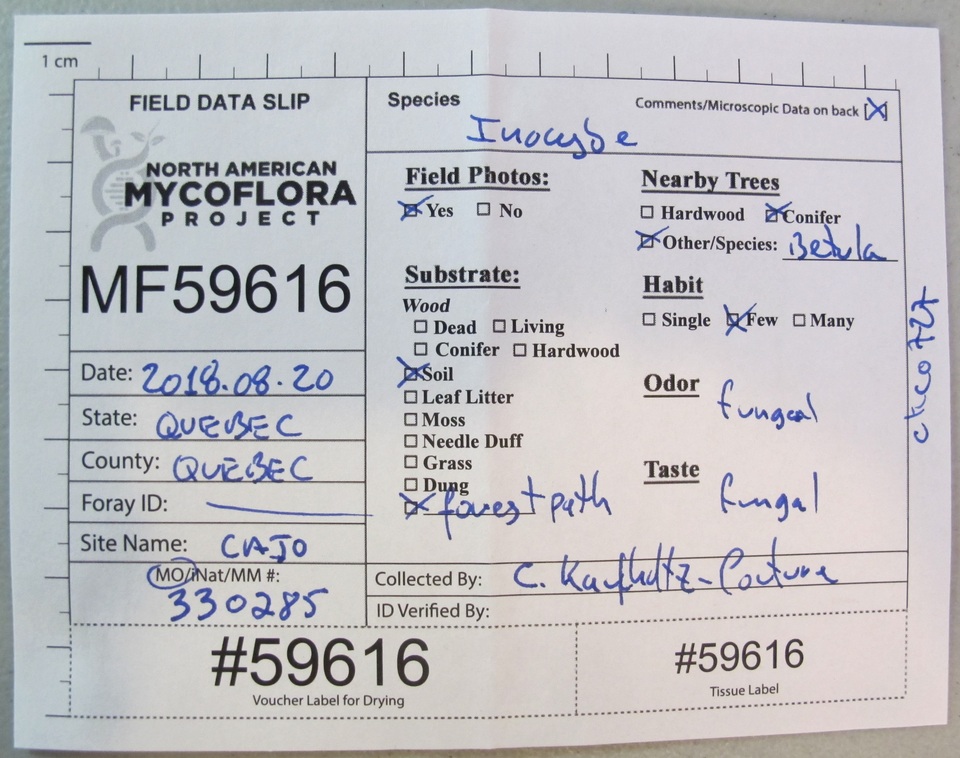 1 cm
FIELD DATA SLIP
NORTH AMERICAN
MYCOFLORA
PROJECT
MF59616
Date: 2018.08.20
State: QUEBEC
County: QUEBEC
Foray ID:
Site Name: CAJO
MO/iNat/MM #:
330285
Species
Comments/Microscopic Data on back
Inocybe
Field Photos:
Yes No
Nearby Trees
Hardwood Conifer
Other/Species: Betula
Substrate:
Wood
Dead Living
Conifer Hardwood
Soil
Leaf Litter
Moss
Needle Duff
Grass
Dung
forest path
Habit
Single Few Many
Odor fungal
Taste fungal
Collected By: C. Kaufholtz-Couture
ID Verified By:
#59616
Voucher Label for Drying
#59616
Tissue Label